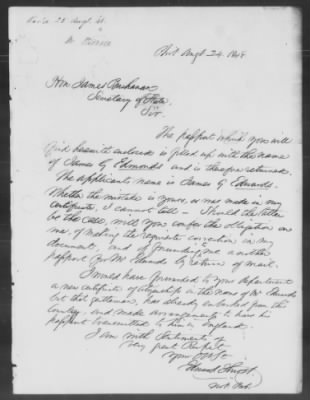 Rec'd 25 Augt 48
Phil Augt 24 1848
Hon James Buchanan
Secretary of State
Sir
The passport which you will
find herewith enclosed is filled up with the name
of James G Edmonds and is therefore returned.
The applicants name is James G Edwards.
Whether the mistake is yours, or was made in my
certificate, I cannot tell — Should the latter
be the case, will you confer the obligation on
me, of making the requisite correction in my
document, and of forwarding me another
passport for Mr Edwards by return of mail.
I would have forwarded to your department
a new certificate of citizenship in the name of Mr Edwards
but that gentleman, has already embarked from this
Country, and made arrangements to have his
passport transmitted to him in England.
I am with Sentiments of
very great Respect
your Obt St
Edmund
Not. Pub.